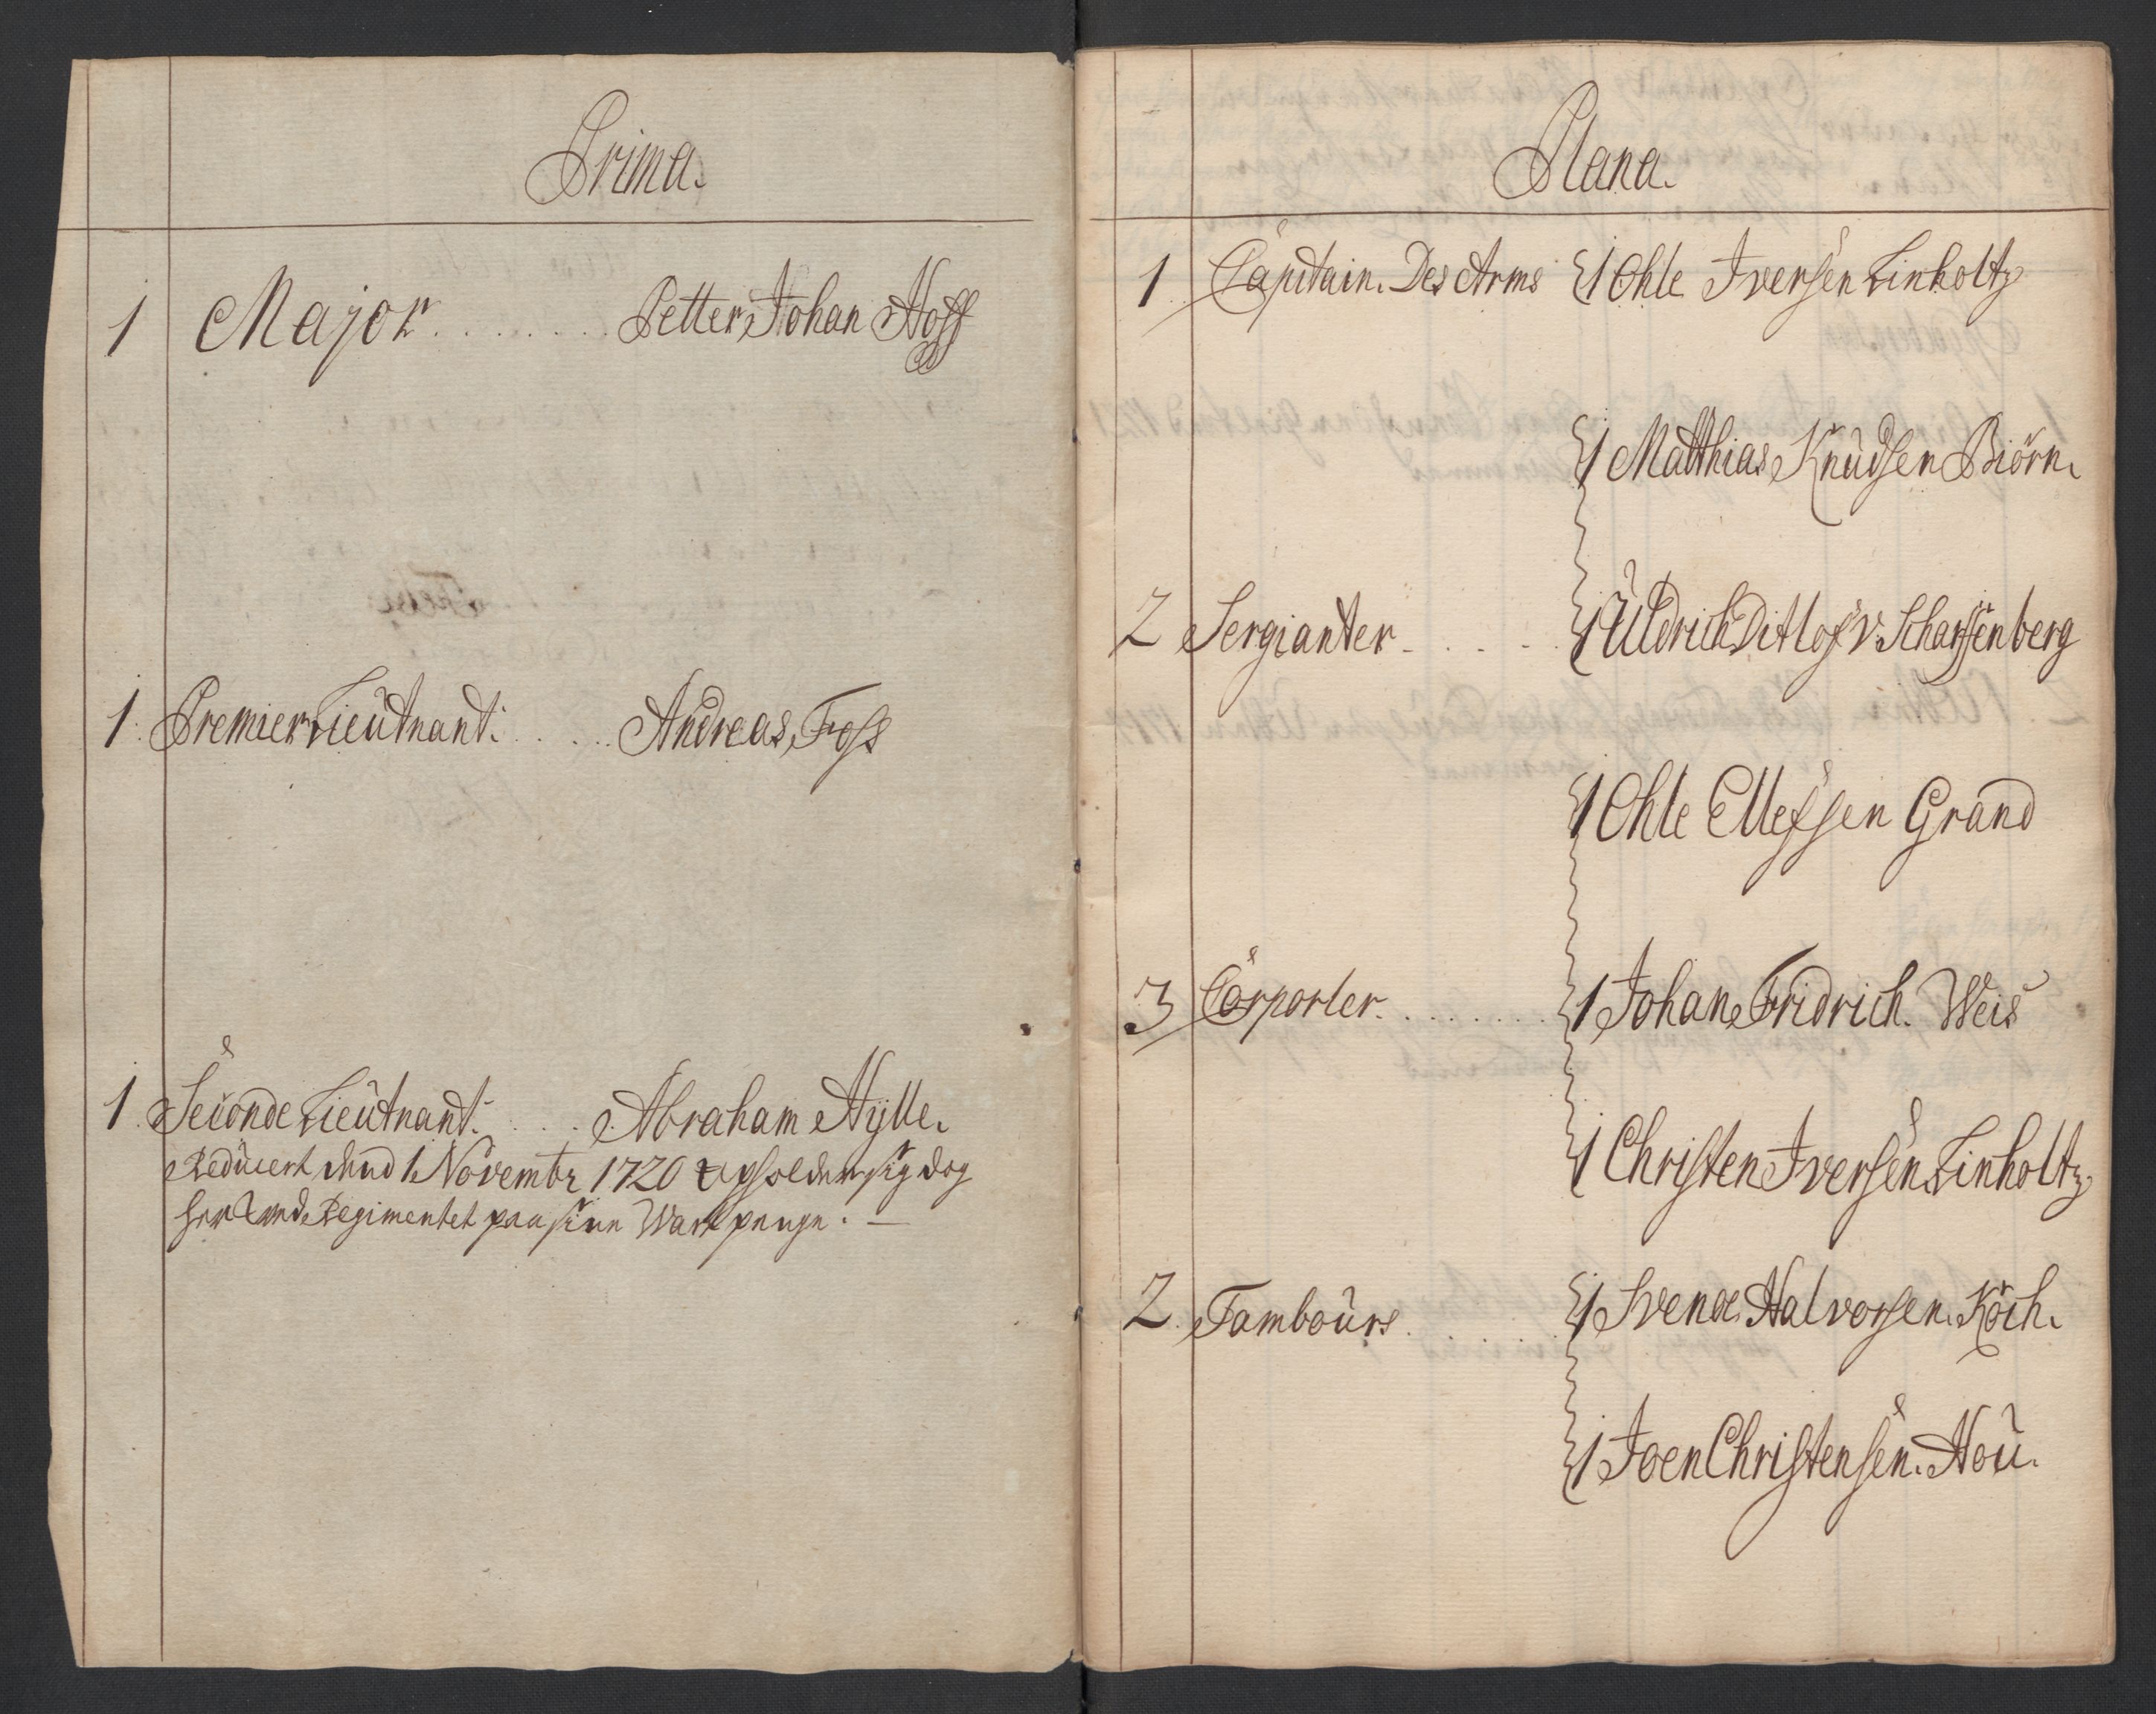 Prima.
1 Major . . . . . . . . Petter Johan Hoff
1. Premier Lieutnant. . . . . Andreas Foss
1. Seconde Lieutnant. . . . . Abraham Hylle.
Reducert dend 1. Novembr 1720 opholder sig dog
her wed Regimentet paa sinn Wartpenge. —
Plana.
1. Capitain. Des Arms 1 Ohle Iversen Linholtz
1 Matthias Knudsen Biörn.
2 Sergianter . . . . 1 Uldrich Ditlof v. Scharffenberg
1 Ohle Ellefsen Grand
3 Corporler. . . . . . . . 1 Johan Fridrich. Weis
1 Christen Iversen Linholtz
2. Tambours . . . . . 1 Svend Halvorsen. Koch.
1 Joen Christensen. Hou.